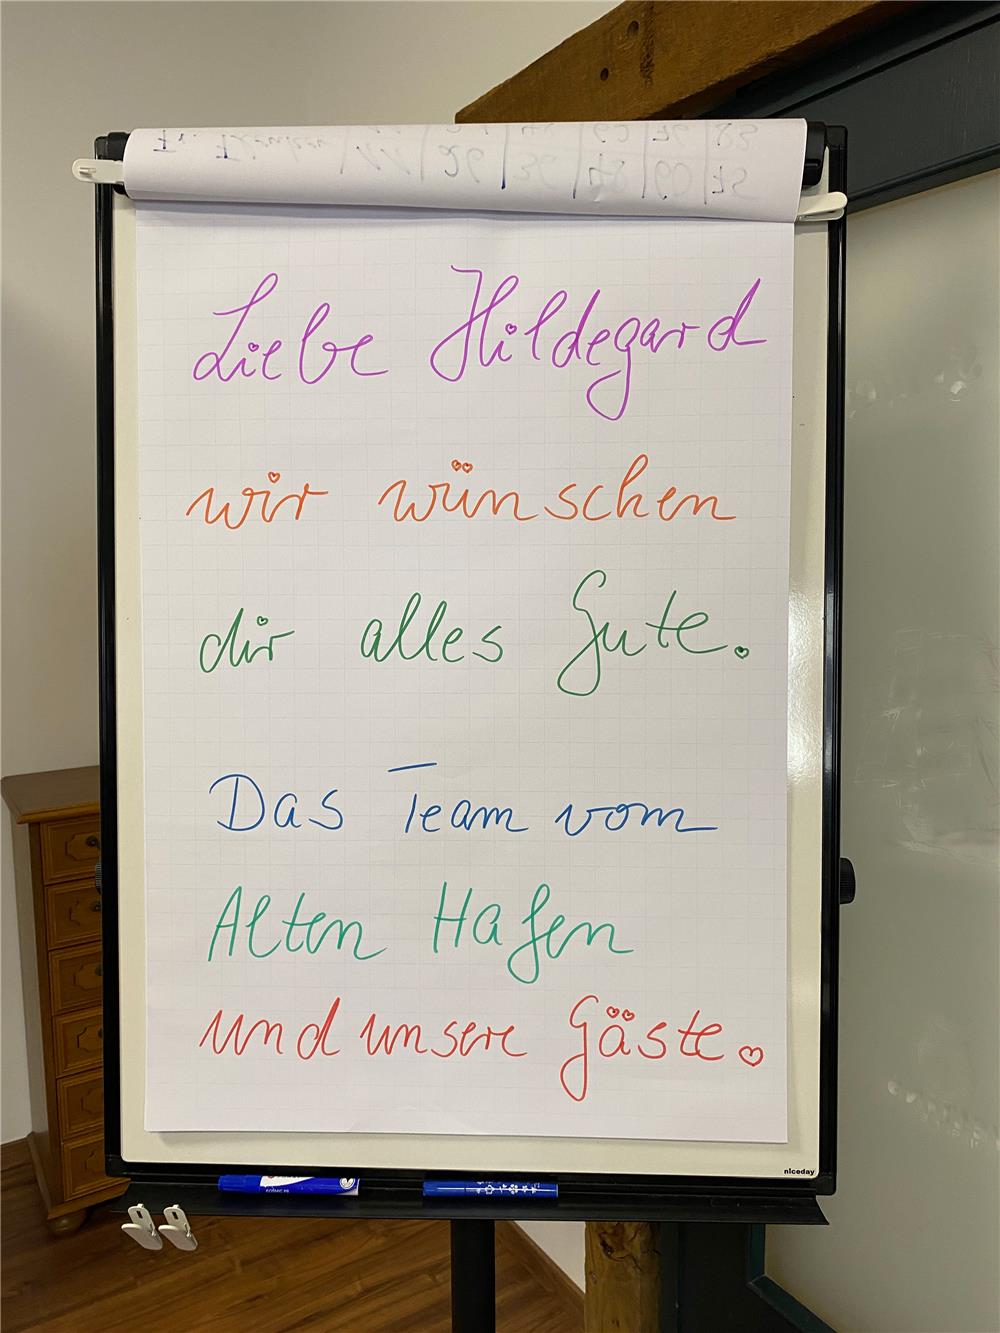 Liebe Hildegard
wir wünschen
dir alles Gute.
Das Team vom
Alten Hafen
und unsere Gäste.
niceday